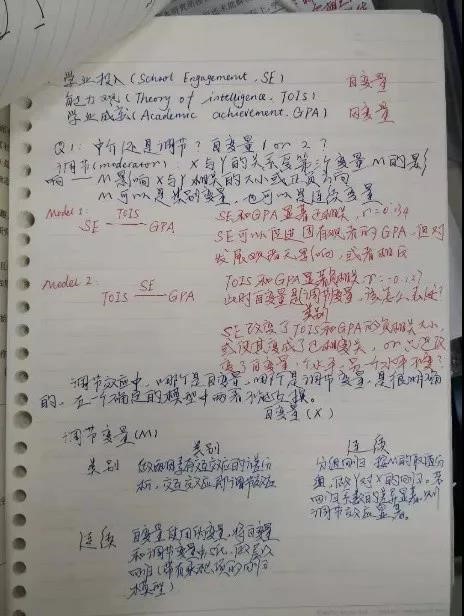 学业投入(School Engagement, SE) 自变量
能力观(Theory of intelligence, TOIS)
学业成就(Academic achievement, GPA) 因变量
Q1: 中介还是调节?自变量 1 or 2?
调节(moderator): X与Y的关系受第三个变量M的影
响——M影响X与Y相关的大小或正负方向
M可以是类别变量,也可以是连续变量
Model 1: TOIS
SE — GPA
SE和GPA显著正相关, r=0.34
SE可以促进固有观者的GPA,但对
发展观者无影响,或者相反
Model 2: SE
TOIS — GPA
TOIS和GPA显著负相关, r=-0.12?
此时自变量是调节变量,该怎么表述?
类别
SE改变了TOIS和GPA的负相关大小,
或使其变成了正相关, or 只改
变了自变量一个水平,另一个水平不变?
调节效应中,哪个是自变量,哪个是调节变量,是很明确
的,在一个确定的模型中两者不能互换。
自变量(X)
调节变量(M)
类别 连续
类别 做两因素有交互效应的方差分
析,交互效应即调节效应
分组回归:按M的取值分
组,做Y对X的回归。若
回归系数的差异显著,则
调节效应显著。
连续 自变量使用伪变量,将自变量
和调节变量中心化,做层次
回归(带有乘积项的回归
模型)